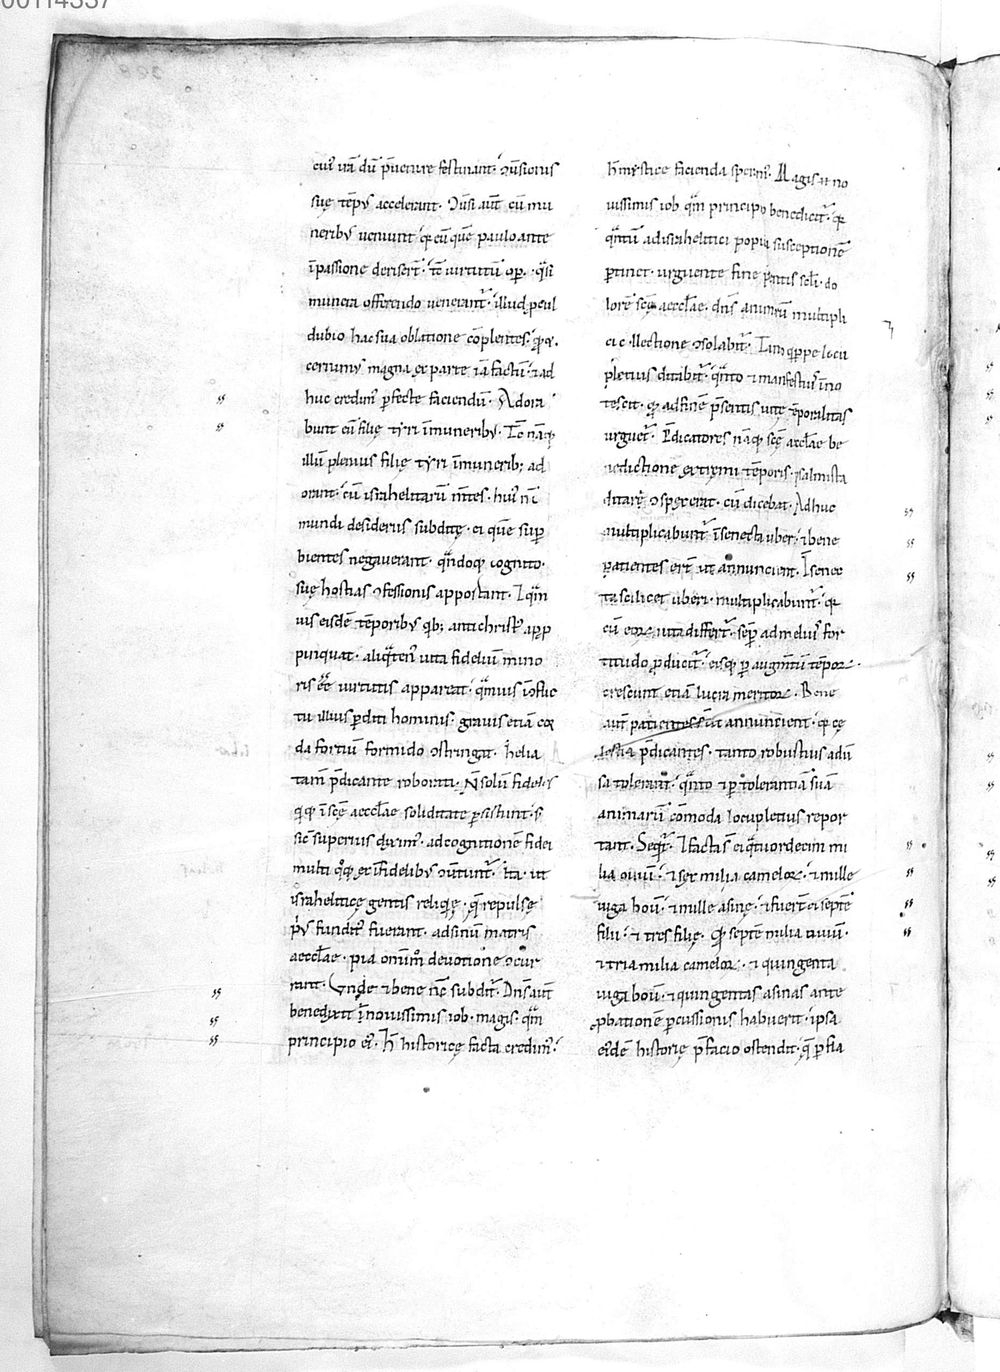 00114337
cui᷒ uā dū p̄uenire festinant· ɔuersionis
suę tēpꝰ accelerant. Ouersi aūt cū mu
neribꝰ ueniunt· q̄ eū quē paulo ante
īpassione deriserꝭ· tc̄ uirtutū oꝑ· q̄si
munera offerendo uenerant᷑· illud ꝓcul
dubio hac sua oblatione cōplentes· ꝙ ꝓx.
cernimꝰ magna ex parte iā factū· & ad
huc credimꝰ ꝑfecte faciendū· Adora
bunt eū filię tyri īmuneribꝰ· Tc̄ nāq;
illū plenius filię tyri īmunerib; ad
orant· cū israhelitarū mītes· huiꝰ nc̄
mundi desideriis subditę· ei quē suꝑ
bientes negauerant· qn̄doq; cognito·
suę hostias ɔfessionis apportant· Et q̄m
uis eisdē tēporibꝰ qib; antichristꝰ apꝓ
pinquat· aliq̄tenꝰ uita fideliū mino
ris eē uirtutis appareat· q̄muis īɔflic
tu illius ꝑditi hominis· grauis etiā cor
da fortiū formido ɔstringat· helia
tam̄ p̄dicante roborati· Nō solū fideles
qiq; ī scę̄ aeccłae soliditate ꝑsistunt· s;
sic̄ superius diximꝰ· ad cognitionē fidei
multi qͦq; ex īfidelibꝰ ɔuertunt᷑· ita· ut
israheliticę gentis reliqię· quę repulsę
priꝰ funditꝰ fuerant· ad sinū matris
aeccłae· pia omīmͦ deuotione ɔcur
rant· Vnde & bene nc̄ subdit᷑· Dn̄s aūt
benedixit īnouissimis iob· magis· q̄m
principio eiꝰ· Hęc historicę facta credimꝰ·
h̄ mystice facienda speramꝰ· Magis & no
uissimis iob q̄m principio benedicit᷑· q̄
q̄ntū ad israhelitici popli susceptionē
ꝑtinet· urguente fine p̄sentis scłi· do
lorē scę̄ aeccłae· dn̄s animarū multipli
ci collectione ɔsolabit᷑· Tanto qippe locu
pletius ditabit᷑· q̄nto & manifestius īno
tescit· ꝙ ad finē p̄sentis uitę tēporalitas
urguet᷑· P̄dicatores nāq; scę̄ aeccłae be
nedictione extremi tēporis· psalmista
ditare ɔspexerat· cū dicebat· Adhuc
multiplicabunt᷑ ī senecta uberi· & bene
patientes erꝭ ut annuncient· In senec
ta scilicet uberi· multiplicabunt᷑· q̄
cū eoꝝ uita differt᷑· semꝑ ad meliꝰ for
titudo ꝓducit᷑· eisq; ꝑ augmtū tēporꝝ·
crescunt etiā lucra meritoꝝ· Bene
aūt patientes sūt annuncient· q̄ cę
lestia p̄dicantes· tanto robustius adū
sa tolerant· q̄nto & ꝑ tolerantiā suā
animarū cōmoda locupletius repor
tant· Seqit᷑· Et facta sūt ei q̄tuordecim mi
lia ouiū· & sex milia cameloꝝ· & mille
iuga boū· & mille asinę· & fuerꝭ ei septē
filii· & tres filię· Quod septē milia ouiū·
& tria milia cameloꝝ· & quingenta
iuga boū· & quingentas asinas ante
ꝓbationē ꝑcussionis habuerit· ipsa
eiꝰdē historię p̄facio ostendit· quę ꝑ fla